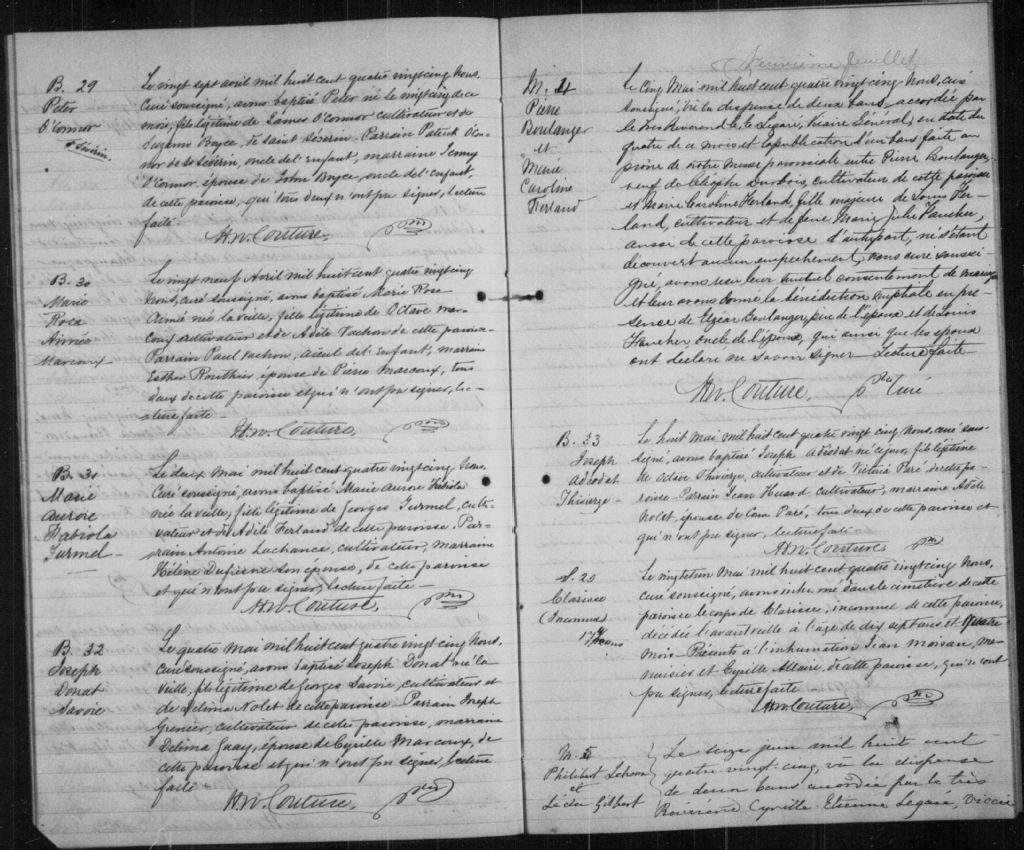 B. 29
Peter
O'Connor
St Séverin.
Le vingt sept avril mil huit cent quatre vingt cinq Nous,
Curé soussigné, avons baptisé Peter né le vingt cinq de ce
mois, fils légitime de James O'Connor cultivateur et de
Suzann Boyce, de Saint Séverin. Parrain Patrick O'Con-
nor de St Séverin, oncle de l'enfant, marraine Jenny
O'Connor épouse de John Bryce, oncle de l'enfant,
de cette paroisse, qui tous deux n'ont pu signer, lecture
faite
H.W. Couture, ptre
B. 30
Marie
Rosa
Aimée
Marcoux
Le vingt neuf Avril mil huit cent quatre vingt cinq
Nous, curé soussigné, avons baptisé Marie Rosa
Aimée née la veille, fille légitime de Octave Mar-
coux cultivateur et de Adèle Vachon de cette paroisse
Parrain Paul Vachon, aïeul de l'Enfant, marraine
Esther Routhier, épouse de Pierre Marcoux, tous
deux de cette paroisse et qui n'ont pu signer, lec-
ture faite
H.W. Couture, ptre
B. 31
Marie
Aurore
Fabiola
Turmel
Le deux Mai mil huit cent quatre vingt cinq Nous
Curé soussigné, avons baptisé Marie Aurore Fabiola
née la veille, fille légitime de Georges Turmel, culti-
vateur et de Adèle Ferland de cette paroisse. Par-
rain Antoine Lachance, cultivateur, marraine
Hélène Dufresne son épouse, de cette paroisse
et qui n'ont pu signer, lecture faite
H.W. Couture, ptre
B. 32
Joseph
Donat
Savoie
Le quatre Mai mil huit cent quatre vingt cinq Nous,
Curé soussigné, avons baptisé Joseph Donat né la
veille, fils légitime de Georges Savoie, cultivateur et
de Délima Nolet de cette paroisse Parrain Joseph
Grenier, cultivateur de cette paroisse, marraine
Délima Guay, épouse de Cyrille Marcoux, de
cette paroisse et qui n'ont pu signer, lecture
faite
H.W. Couture, ptre
Neuvième feuillet
M. 4
Pierre
Boulanger
et
Marie
Caroline
Ferland
Le Cinq Mai mil huit cent quatre vingt cinq Nous, curé
soussigné, vu la dispense de deux bans accordée par
le très Reverend C. E. Légaré, Vicaire Général, en date du
quatre de ce mois et la publication d'un bans faite au
prône de notre Messe paroissiale entre Pierre Boulanger,
veuf de Dubois, cultivateur de cette paroisse
et Marie Caroline Ferland, fille majeure de Louis Fer-
land, cultivateur et de feue Marie Julie Faucher,
aussi de cette paroisse d'autre part, ne s'étant
découvert aucun empêchement, nous curé soussi-
gné, avons reçu leur mutuel consentement de mariage
et leur avons donné la bénédiction nuptiale en pré-
sence de Elzéar Boulanger, père de l'époux et de Louis
Faucher oncle de l'épouse, qui ainsi que les époux
ont déclaré ne savoir signer Lecture faite
H.W. Couture, ptre Curé
B. 33
Joseph
Adiodat
Thivierge
Le huit Mai mil huit cent quatre vingt cinq Nous, curé sous-
signé, avons baptisé Joseph Adiodat né ce jour, fils légitime
de Octave Thivierge, cultivateur et de Victoria Paré, de cette pa-
roisse Parrain Jean Huard cultivateur, marraine Adèle
Nolet, épouse de Paré, tous deux de cette paroisse et
qui n'ont pu signer, lecture faite
H.W. Couture ptre
S. 20
Clarisse
Inconnue
17 ans
Le vingt et un Mai mil huit cent quatre vingt cinq Nous,
curé soussigné, avons inhumé dans le cimetière de cette
paroisse le corps de Clarisse, inconnue de cette paroisse,
décédée l'avant veille à l'age de dix sept ans et quatre
mois Présents à l'inhumation Jean Moisan, me-
nuisier et Cyrille Allaire, de cette paroisse, qui n'ont
pu signer, lecture faite
H.W. Couture, ptre
M. 5
Philibert
et
Gilbert
Le seize juin mil huit cent
quatre vingt-cinq, vu la dispense
de deux bans accordée par le très
Révérend Cyrille Etienne Légaré, Vicaire